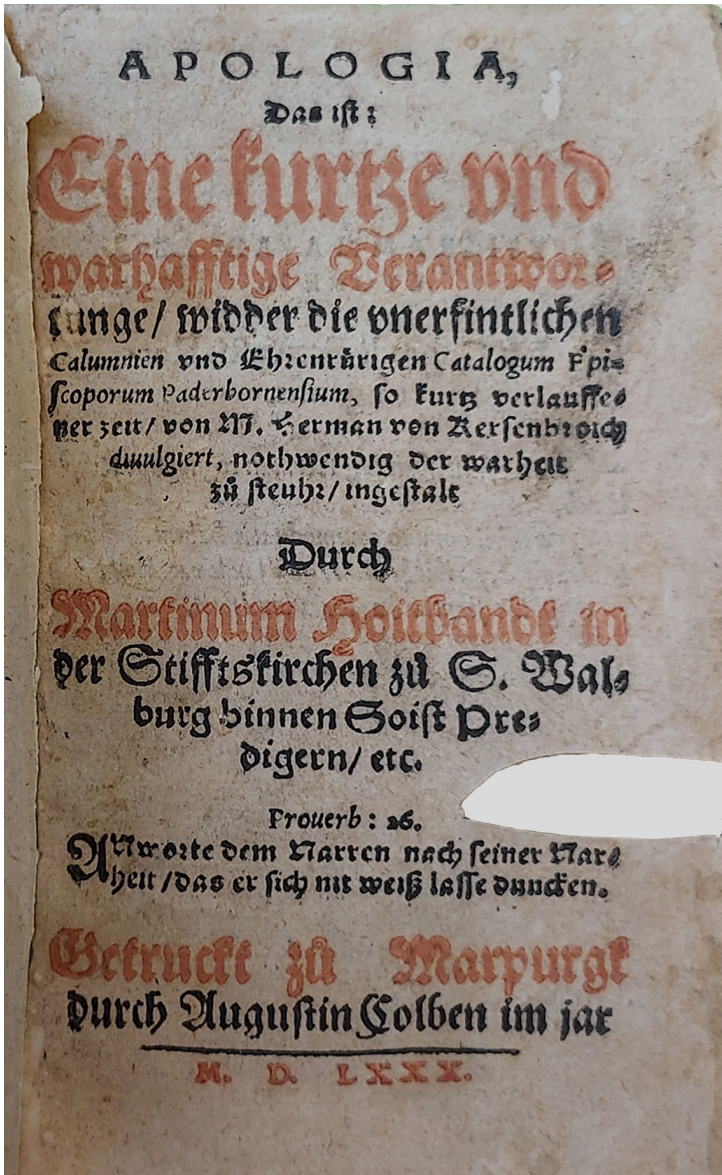 APOLOGIA,
Das ist:
Eine kurtze vnd
warhafftige Verantwor-
tunge/ widder die vnerfintlichen
Calumnien vnd Ehrenrürigen Catalogum Epi-
scoporum Paderbornensium, so kurtz verlauffe-
ner zeit/ von M. Herman von Kersenbroich
diuulgiert, nothwendig der warheit
zů steuhr/ ingestalt
Durch
Martinum Hoitbandt in
der Stifftskirchen zů S. Wal-
burg binnen Soist Pre-
digern/ etc.
Prouerb: 26.
ANtworte dem Narren nach seiner Nar-
heit/ das er sich nit weiß lasse duncken.
Getruckt zů Marpurgk
durch Augustin Colben im jar
M. D. LXXX.